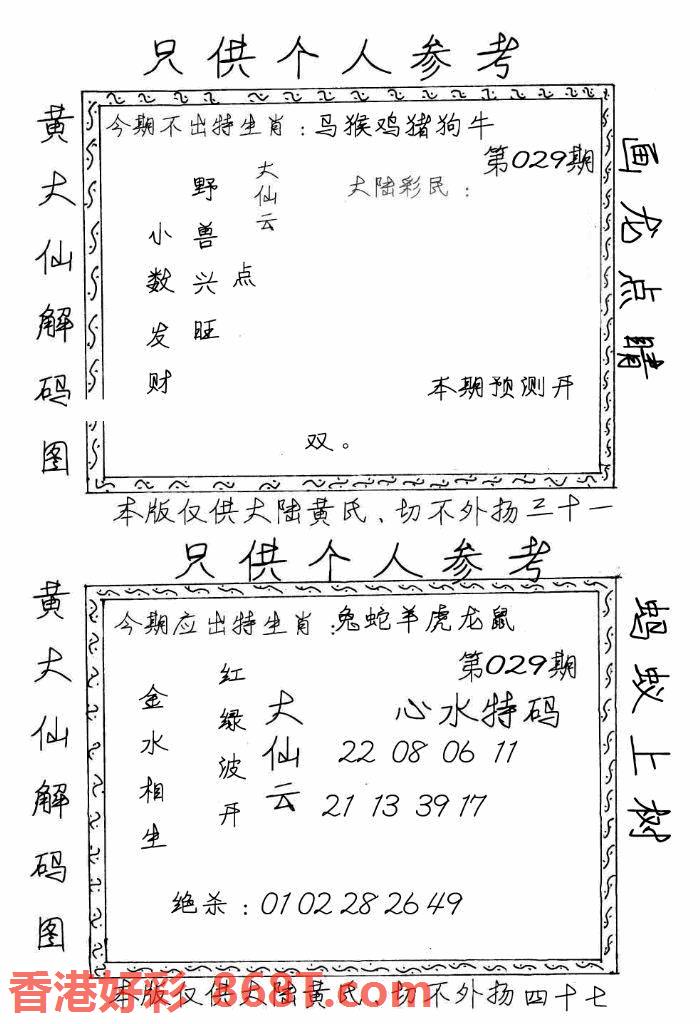 只供个人参考
黄大仙解码图
今期不出特生肖:马猴鸡猪狗牛
第029期
大陆彩民:
大仙云
野兽兴旺
小数发财
点
本期预测开
双。
画龙点睛
本版仅供大陆黄氏、切不外扬三十一
只供个人参考
黄大仙解码图
今期应出特生肖:兔蛇羊虎龙鼠
第029期
心水特码
大仙云
红绿波开
金水相生
22 08 06 11
21 13 39 17
绝杀:01 02 28 26 49
蚂蚁上树
本版仅供大陆黄氏、切不外扬四十七
香港好彩 868T.com